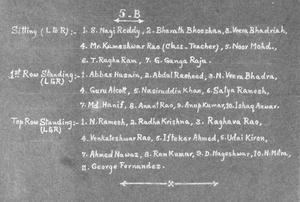 5-B
Sitting (L & R) :- 1. S. Nagi Reddy, 2. Bharath Bhooshan, 3. Veera Bhadriah,
4. Mr. Kameshwar Rao (Class-Teacher), 5. Noor Mohd.,
6. T. Raghu Ram, 7. G. Ganga Raju.
1st Row Standing :- 1. Abbas Husain, 2. Abdul Rasheed, 3. N. Veera Bhadra,
(L & R) 4. Guru Alcott, 5. Nasiruddin Khan, 6. Satya Ranosh,
7. Md. Hanif, 8. Anant Rao, 9. Anup Kumar, 10. Ishaq Anwar.
Top Row Standing :- 1. N. Ramesh, 2. Radha Krishna, 3. Raghava Rao,
(L & R) 4. Venkateshwar Rao, 5. Iftekar Ahmed, 6. Udai Kiren,
7. Ahmed Nawaz, 8. Ram Kumar, 9. D. Nageshwar, 10. N. Mitra,
11. George Fernandez.